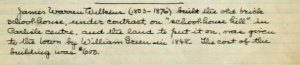 James Warren Wilkins (1803-1876) built the old brick
schoolhouse, under contract on "schoolhouse hill" in
Carlisle centre, and the land to put it on, was given
to the town by William Green in 1848. The cost of the
building was $600.